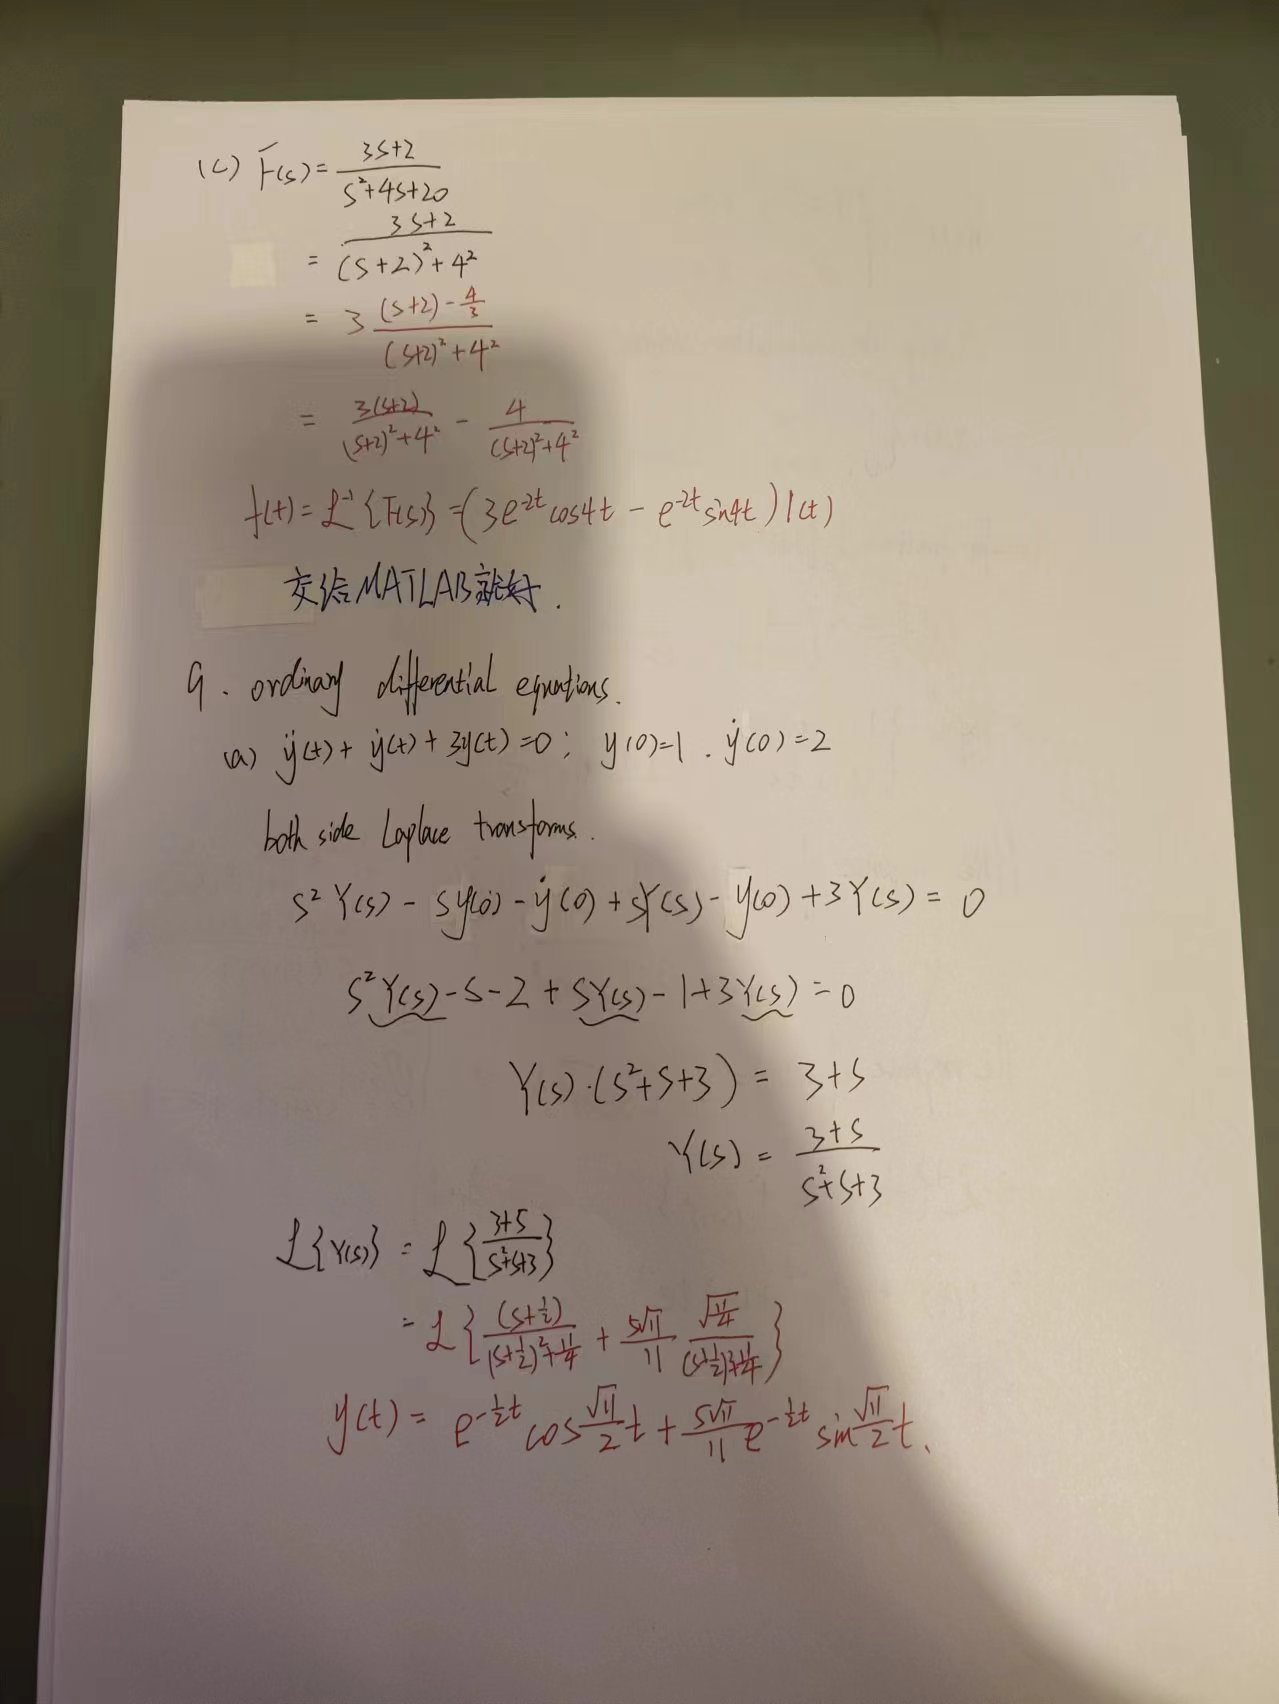 (c) F(s) = (3s+2)/(s²+4s+20)
= (3s+2)/((s+2)²+4²)
= 3 ((s+2)-4/3)/((s+2)²+4²)
= 3(s+2)/((s+2)²+4²) - 4/((s+2)²+4²)
f(t) = ℒ⁻¹{F(s)} = (3e^{-2t}cos4t - e^{-2t}sin4t)1(t)
交给MATLAB就好.
9. ordinary differential equations.
(a) ÿ(t) + ẏ(t) + 3y(t) = 0; y(0)=1. ẏ(0)=2
both side Laplace transforms.
s²Y(s) - sy(0) - ẏ(0) + sY(s) - y(0) + 3Y(s) = 0
s²Y(s) - s - 2 + sY(s) - 1 + 3Y(s) = 0
Y(s)·(s²+s+3) = 3+s
Y(s) = (3+s)/(s²+s+3)
ℒ{Y(s)} = ℒ{(3+s)/(s²+s+3)}
= ℒ{(s+1/2)/((s+1/2)²+11/4) + 5√11/11 √(11/4)/((s+1/2)²+11/4)}
y(t) = e^{-1/2 t} cos √11/2 t + 5√11/11 e^{-1/2 t} sin √11/2 t.